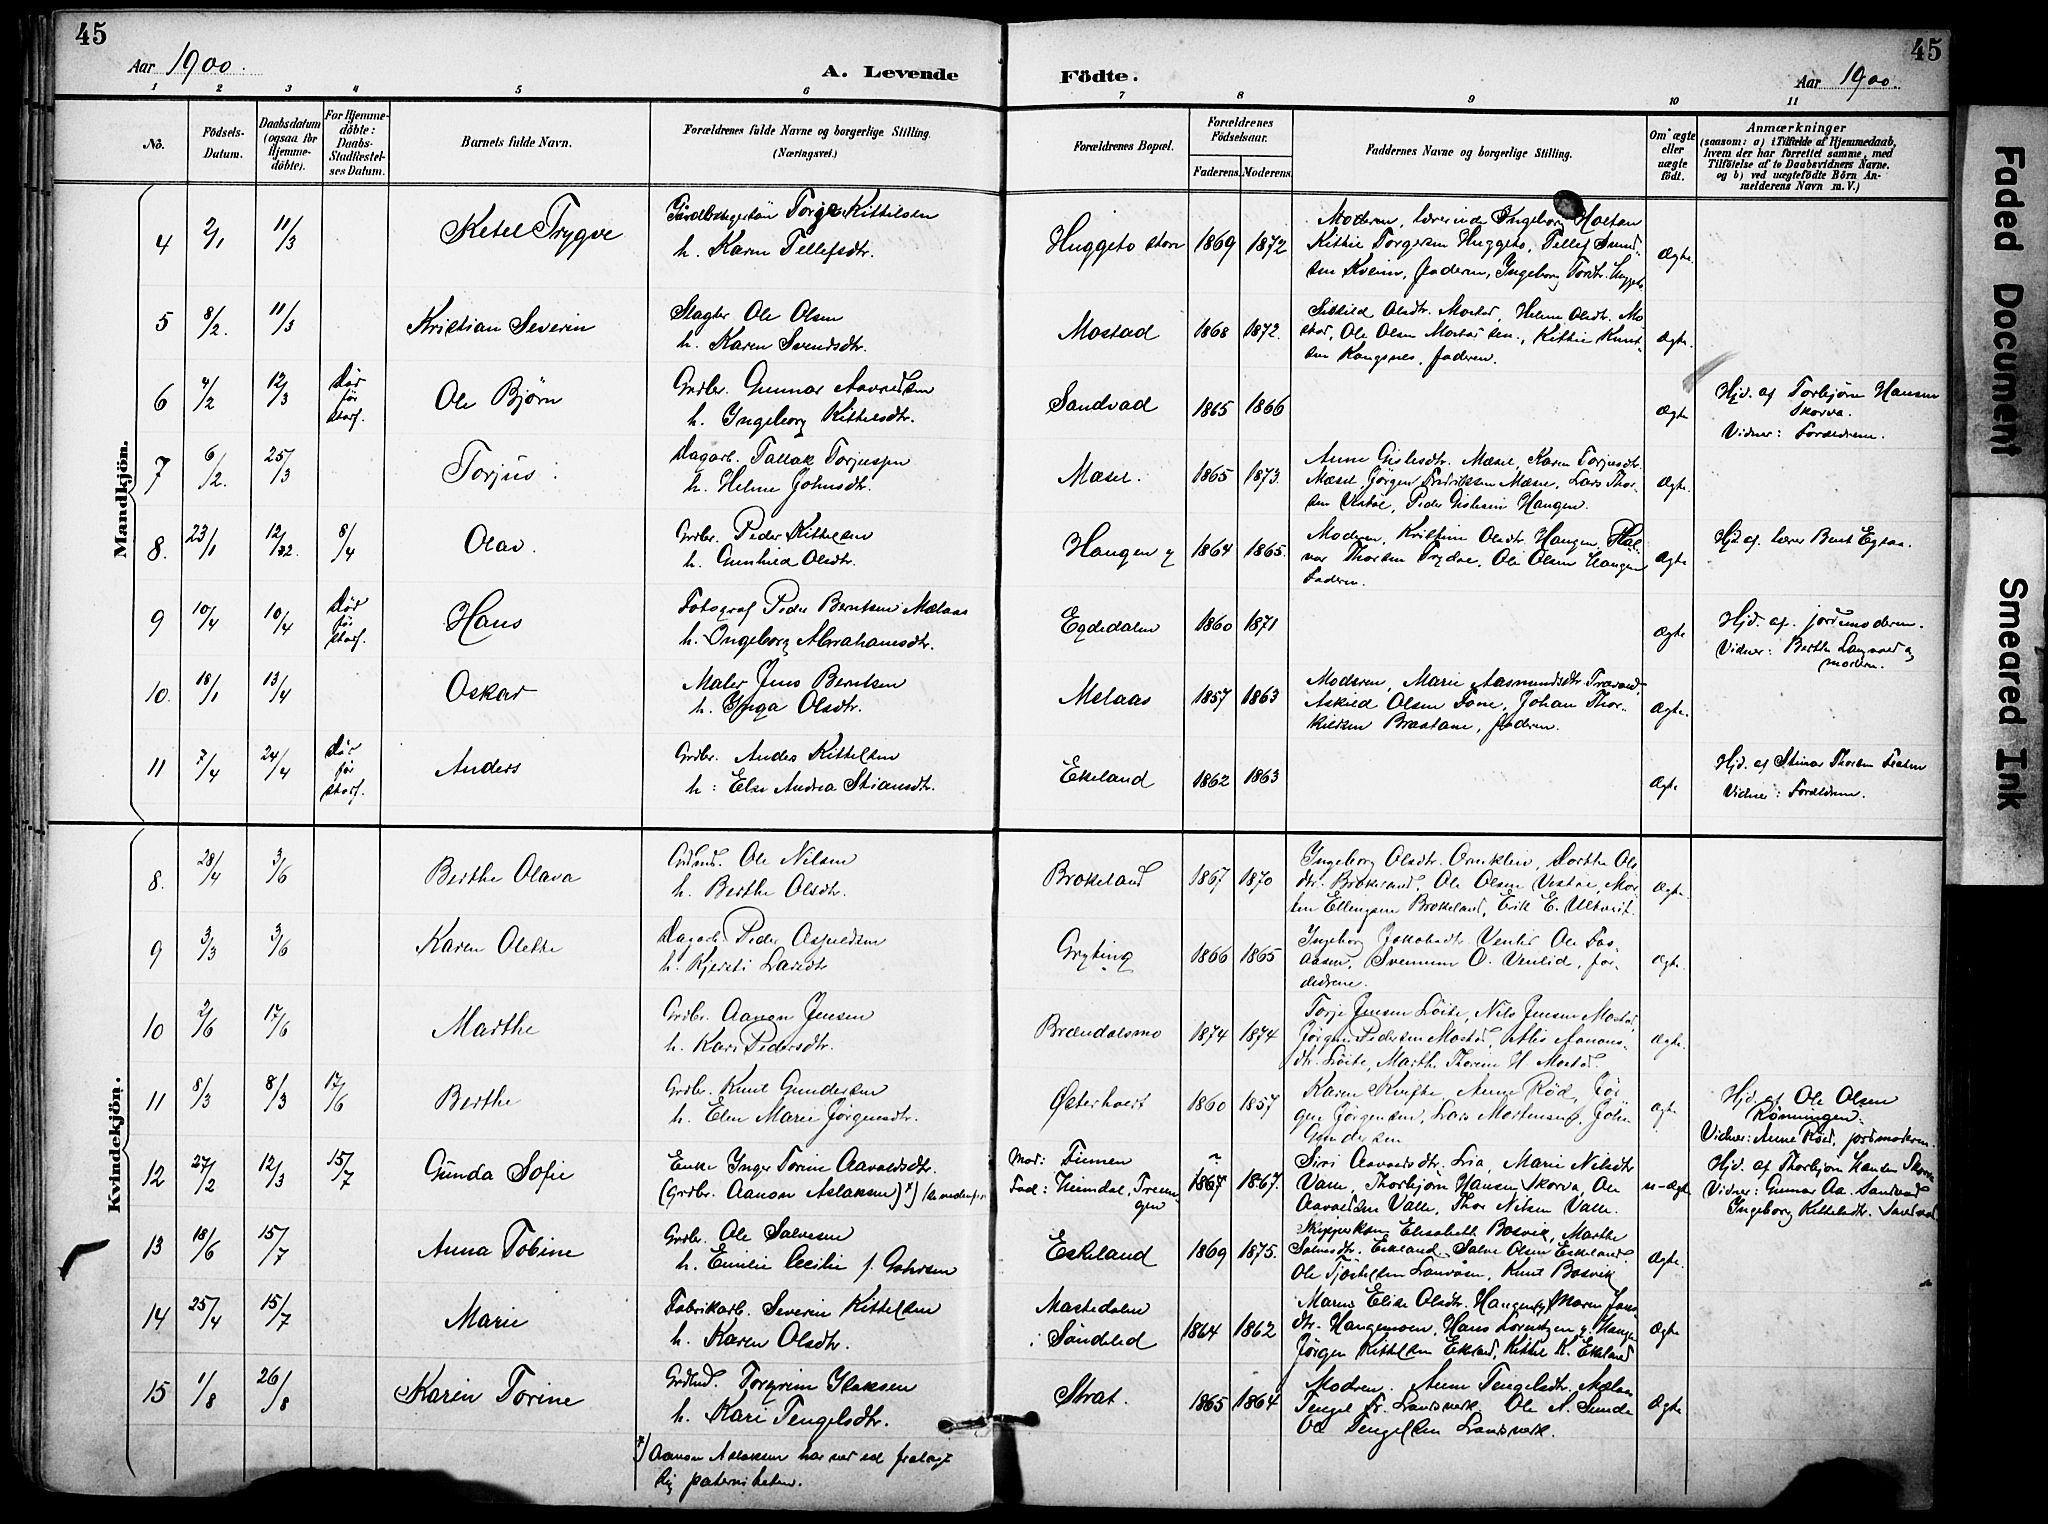 45
45
Aar 1900.
A. Levende Födte.
Aar 1900.
1 2 3 4 5 6 7 8 9 10 11
No.
Födsels-Datum.
Daabsdatum (ogsaa for Hjemmedöbte).
For Hjemmedöbte: Daabs-Stadfæstelses Datum.
Barnets fulde Navn.
Forældrenes fulde Navne og borgerlige Stilling. (Næringsvei.)
Forældrenes Bopæl.
Forældrenes Födselsaar.
Faderens. Moderens.
Faddernes Navne og borgerlige Stilling.
Om ægte eller uægte födt.
Anmærkninger
(saasom: a) i Tilfælde af Hjemmedaab, hvem der har forrettet samme, med Tilföielse af to Daabsvidners Navne. og b) ved uægtefödte Börn Anmelderens Navn m. V.)
Mandkjön.
4 2/1 11/3 Ketel Trygve
Torje Kittilsen
h. Karen Tellefsdtr.
Huggeto 1869 1872
Moderen, lærerinde Ingeborg Holtan
Kittil Torgersen Huggeto, Tellef
Faderen, Ingeborg
Ægte.
5 8/2. 11/3 Kristian Severin
Slagter Ole Olsen
h. Karen Svendsdtr.
Mostad 1868 1872.
Olsdtr. Mostad, Helene Olsdtr. Mo
stad, Ole Olsen Mostad sen., Kittil Knut
sen Kongsnes, faderen.
Ægte.
6 4/2 12/3 Død før stadf.
Ole Bjørn
Grdbr. Gunnar Aavoldsen
h. Ingeborg Kittelsdtr.
Sandvad 1865 1866
Ægte
Hjd. af Torbjørn Hansen
Skorva.
Vidner: Forældrene.
7 6/2. 25/3 Torjus
Dagarb. Tallak Torjussen
h. Helene Johnsdtr.
Mæsel. 1865 1873.
Anne Gislesdtr. Mæsel, Karen Torjusdtr.
Mæsel, Jørgen Fredriksen Mæsel, Lars Thor-
sen Vestøl, Peder Gislesen Haugen.
Ægte.
8. 23/1 12/ 8/4 Olav.
Grdbr. Peder Kittelsen
h. Gunhild Olsdtr.
Haugen y 1864 1865.
Moderen, Kristine Olsdtr. Haugen, Hal-
vor Thorsen Trydal, Ole Olsen Haugen
Faderen.
Ægte
Hjd. af lærer Bent Egsaa.
9 10/4 10/4 Død før stadf.
Hans
Fotograf Peder Berntsen Mælaas
h. Ingeborg Abrahamsdtr.
Egdedalen 1860 1871
Ægte
Hjd. af jordmoderen.
Vidner: Berthe og
moderen.
10. 18/1 13/4 Oskar
Maler Jens Berntsen
h. Inga Olsdtr.
Melaas 1857 1863
Moderen, Marie Aasmundsdtr.
Askild Olsen Tone, Johan Thor-
kildsen Brastane, faderen.
Ægte.
11 7/4 24/4 Død før stadf.
Anders
Grdbr. Anders Kittelsen
h: Else Andrea Stiansdtr.
Ekeland 1862 1863
Ægte
Hjd. af Steinar Thorsen
Vidner: Forældrene.
Kvindekjön.
8. 28/4 3/6 Berthe Olava
Ole Nilsen
h. Berthe Olsdtr.
Brokeland 1867 1870
Ingeborg Olsdtr. Dorthe Ols
dtr. Brokeland, Ole Olsen Vestøl, Mor
ten Ellingsen Brokeland, Erik E. Ulltveit.
Ægte.
9 3/3 3/6 Karen Olette
Dagarb. Peder
h. Kjersti Larsdtr
Gryting 1866 1865
Ingeborg Jakobsdtr Venlid Ole
aasen, O. Venlid, for-
ældrene.
Ægte.
10 2/6 17/6 Marthe
Grdbr. Aanon Jensen
h. Kari Pedersdtr.
Brændalsmo 1874 1874
Torje Jensen Løite, Nils Jensen Mostad
Jørgen Pedersen Mostad, Aanons-
dtr. Løite, Marthe Thorine H Mostad
Ægte.
11 8/3 8/3 17/6 Berthe
Grdbr. Knut Gundersen
h. Elen Marie Jørgensdtr.
Østerholt 1860 1857
Karen Kvifte Anne Rød, Jør
gen Jørgensen, Lars Mortensen, John
Gundersen
Ægte
Hjd. af Ole Olsen
Rønningen.
Vidner: Anne Rød, jordmoderen.
12 27/2 12/3 15/7 Gunda Sofie
Enke Inger Torine Aavoldsdtr.
(Grdbr. Aanon Aslaksen) x)
Mod: Finmen
Fad: Heimdal,
1867 1867.
Siri Aavoldsdtr. Lia, Marie Nilsdtr
Valle, Thorbjørn Hansen Skorva, Ole
Aavoldsen Valle, Thor Nilsen Valle.
u-ægte
Hjd. af Thorbjørn Hansen Skorva
Vidner: Gunnar Aa. Sandvad
Ingeborg Kittelsdtr. Sandvad.
13 18/6 15/7 Anna Tobine
Grdbr. Ole Salvesen
h. Emilie Cecilie f.
Eskeland 1869 1875.
Elisabeth Bosvik, Marthe
Salvesdtr. Eskeland, Salve Olsen Eskeland,
Ole Tjøstelsen Knut Bosvik
Ægte.
14 25/4 15/7 Marie
Fabrikarb. Severin Kittelsen
h. Karen Olsdtr.
Mastedalen
i Søndeled 1864 1862
Maren Elise Olsdtr. Haugen, Maren Jens
dtr. Haugemoen, Hans Lorentzen y. Haugen
Jørgen Kittelsen Ekeland, Kittil K. Ekeland
Ægte
15 1/8 26/8 Karen Torine
Torgrim Islaksen
h. Kari Tengelsdtr.
Strat. 1865 1864
Moderen. Anne Tengelsdtr. Mælaas
Tengel Landsverk. Ole A. Sunde
Ole Tengelsen Landsverk.
Ægte
x) Aanon Aslaksen har ved ed fralagt
sig paterniteten.
Faded Document
Smeared Ink